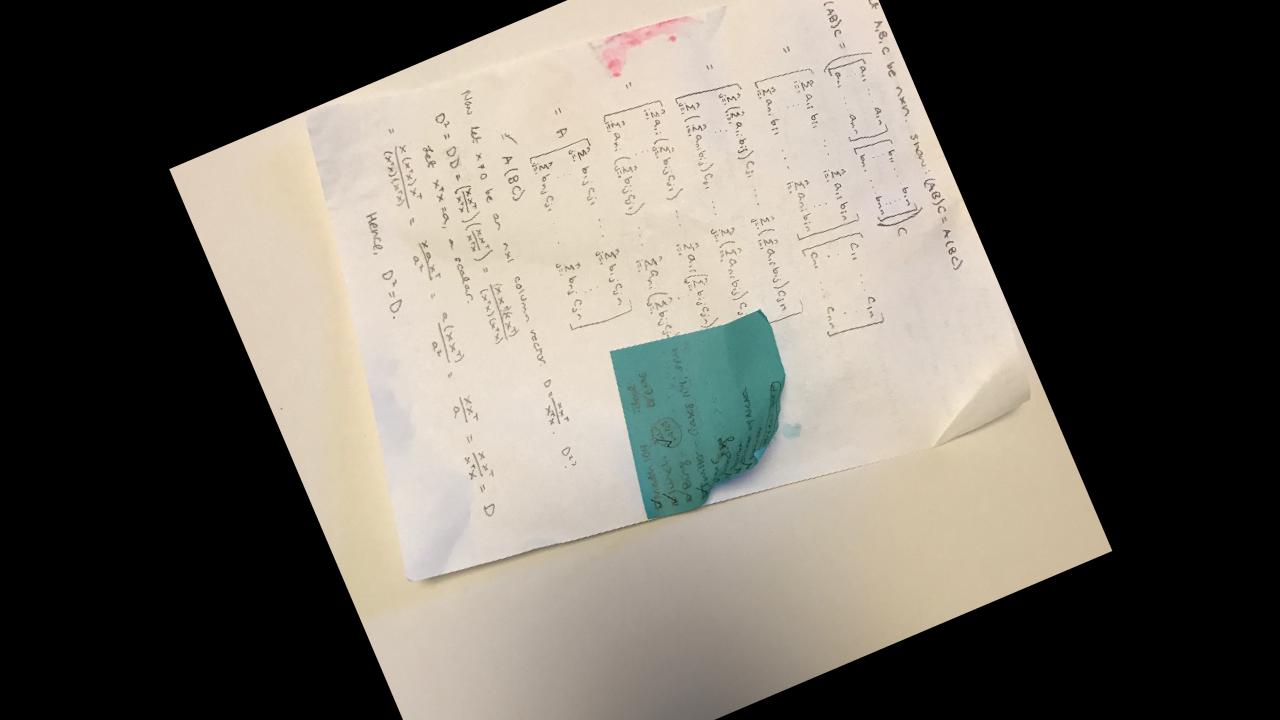 A, B, C be nxn. show: (AB)C = A(BC)
(AB)C = ([a₁₁ ... a₁ₙ; ⋮ ⋮; aₙ₁ ... aₙₙ][b₁₁ ... b₁ₙ; ⋮ ⋮; bₙ₁ ... bₙₙ])C
= [Σᵢ₌₁ⁿ a₁ᵢbᵢ₁ ... Σᵢ₌₁ⁿ a₁ᵢbᵢₙ; ⋮ ⋮; Σᵢ₌₁ⁿ aₙᵢbᵢ₁ ... Σᵢ₌₁ⁿ aₙᵢbᵢₙ][c₁₁ ... c₁ₙ; ⋮ ⋮; cₙ₁ ... cₙₙ]
= [Σⱼ₌₁ⁿ(Σᵢ₌₁ⁿ a₁ᵢbᵢⱼ)cⱼ₁ ... Σⱼ₌₁ⁿ(Σᵢ₌₁ⁿ a₁ᵢbᵢⱼ)cⱼₙ; ⋮; Σⱼ₌₁ⁿ(Σᵢ₌₁ⁿ aₙᵢbᵢⱼ)cⱼ₁ ... Σⱼ₌₁ⁿ(Σᵢ₌₁ⁿ aₙᵢbᵢⱼ)c
= [Σᵢ₌₁ⁿ a₁ᵢ(Σⱼ₌₁ⁿ bᵢⱼcⱼ₁) ... Σᵢ₌₁ⁿ a₁ᵢ(Σⱼ₌₁ⁿ bᵢⱼcⱼₙ); ⋮; Σᵢ₌₁ⁿ aₙᵢ(Σⱼ₌₁ⁿ bᵢⱼcⱼ₁) ... Σᵢ₌₁ⁿ aₙᵢ(Σⱼ₌₁ⁿ bᵢⱼcⱼ
= A[Σⱼ₌₁ⁿ b₁ⱼcⱼ₁ ... Σⱼ₌₁ⁿ b₁ⱼcⱼₙ; ⋮ ⋮; Σⱼ₌₁ⁿ bₙⱼcⱼ₁ ... Σⱼ₌₁ⁿ bₙⱼcⱼₙ]
= A(BC)
Now let x≠0 be an nx1 column vector. D = xxᵀ/xᵀx. D²?
D² = DD = (xxᵀ/xᵀx)(xxᵀ/xᵀx) = (xxᵀ)(xxᵀ)/(xᵀx)(xᵀx)
Let xᵀx = a, a scalar.
= x(xᵀx)xᵀ/(xᵀx)(xᵀx) = xaxᵀ/a² = a(xxᵀ)/a² = xxᵀ/a = xxᵀ/xᵀx = D
Hence, D² = D.